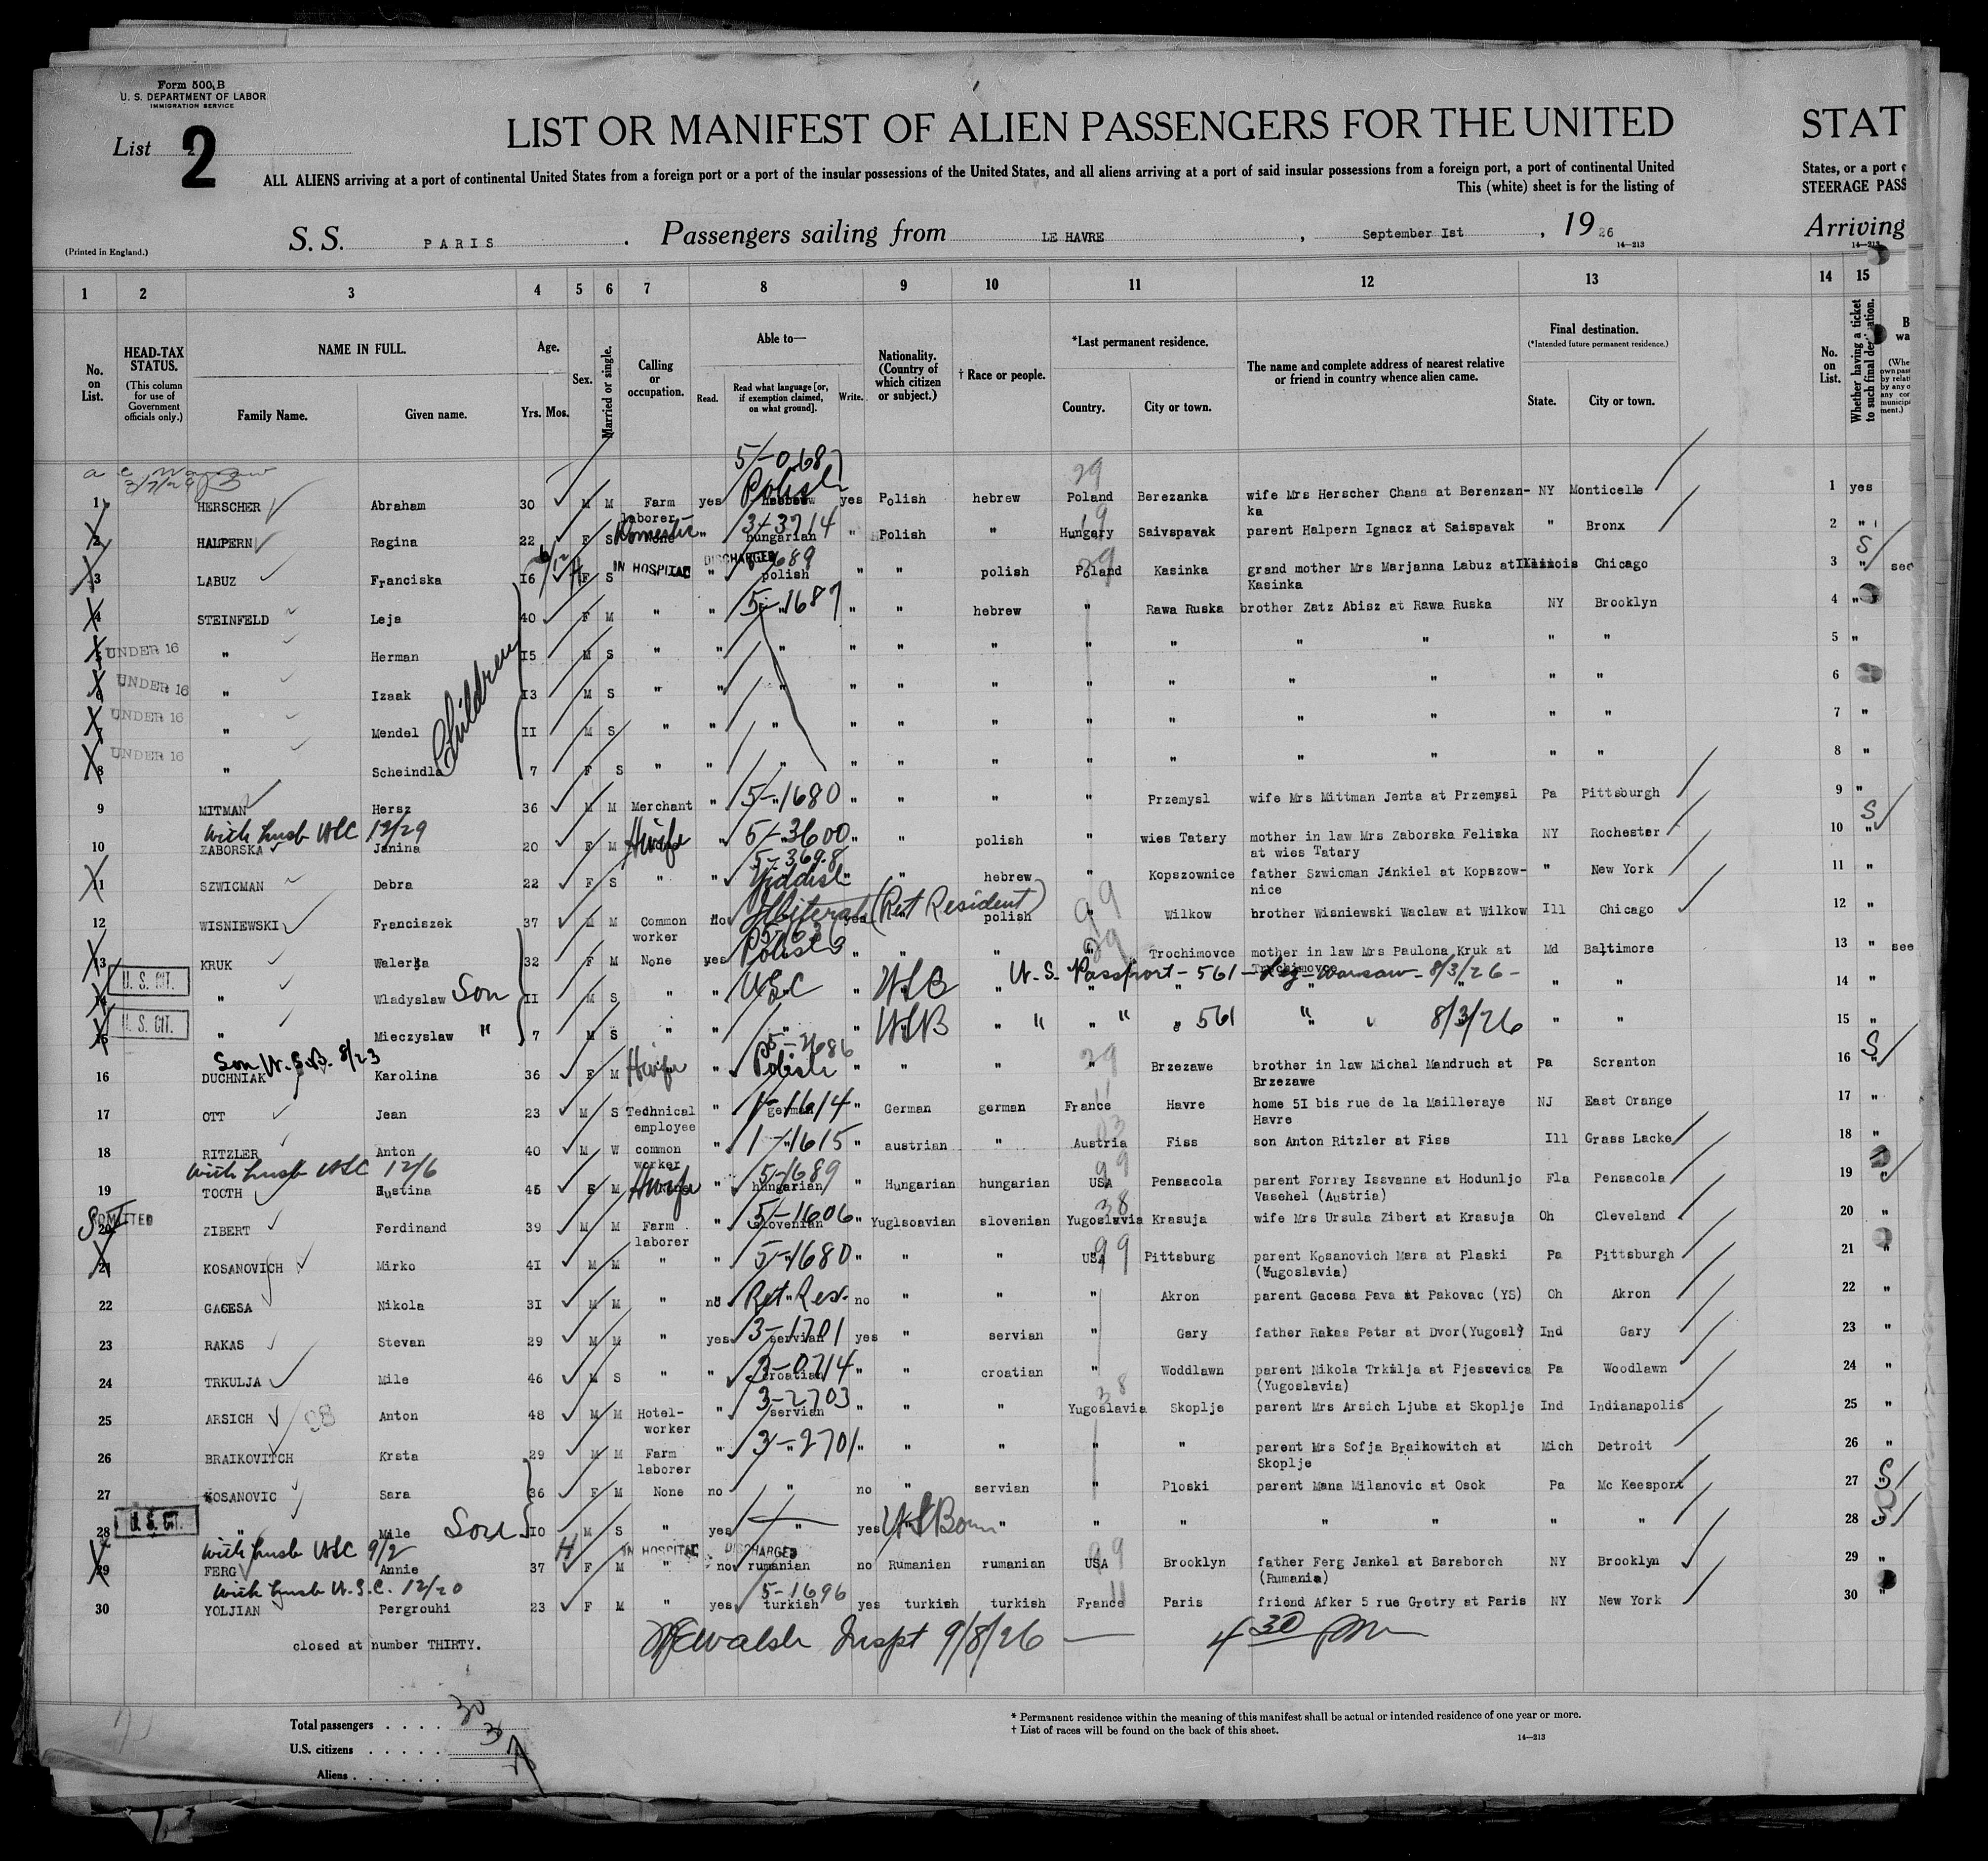 Form 500 B
U. S. DEPARTMENT OF LABOR
IMMIGRATION SERVICE
List 2
LIST OR MANIFEST OF ALIEN PASSENGERS FOR THE UNITED STAT
ALL ALIENS arriving at a port of continental United States from a foreign port or a port of the insular possessions of the United States, and all aliens arriving at a port of said insular possessions from a foreign port, a port of continental United States, or a port
This (white) sheet is for the listing of STEERAGE PASS
(Printed in England.)
S. S. PARIS . Passengers sailing from LE HAVRE , September Ist , 19 26 Arriving
14—213 14—213
1 2 3 4 5 6 7 8 9 10 11 12 13 14 15
No. on List. HEAD-TAX STATUS. (This column for use of Government officials only.) NAME IN FULL. Family Name. Given name. Age. Yrs. Mos. Sex. Married or single. Calling or occupation. Able to— Read. Read what language [or, if exemption claimed, on what ground]. Write. Nationality. (Country of which citizen or subject.) † Race or people. *Last permanent residence. Country. City or town. The name and complete address of nearest relative or friend in country whence alien came. Final destination. (*Intended future permanent residence.) State. City or town. No. on List. Whether having a ticket to such final destination.
5/-068
1 HERSCHER Abraham 30 M M Farm laborer yes Polish hebrew yes Polish hebrew Poland 29 Berezanka wife Mrs Herscher Chana at Berenzan-ka NY Monticello 1 yes
2 HALPERN Regina 22 F S Domestic " 3-3714 hungarian " Polish " Hungary 19 Saivspavak parent Halpern Ignacz at Saispavak " Bronx 2 "
3 LABUZ Franciska I6 H F S IN HOSPITAL " DISCHARGED polish " " polish Poland 29 Kasinka grand mother Mrs Marjanna Labuz at Kasinka Illinois Chicago 3 " S see
4 STEINFELD Leja 40 F M " " 5-1687 " " hebrew " Rawa Ruska brother Zatz Abisz at Rawa Ruska NY Brooklyn 4 "
5 UNDER 16 " Herman I5 M S " " " " " " " " " " " " 5 "
6 UNDER 16 " Izaak I3 M S " " " " " " " " " " " " 6
7 UNDER 16 " Mendel II M S " " " " " " " " " " " " 7 "
8 UNDER 16 " Scheindla 7 F S " " " " " " " " " " " " 8 "
Children
9 MITMAN Hersz 36 M M Merchant " 5-1680 " " " " Przemysl wife Mrs Mittman Jenta at Przemysl Pa Pittsburgh 9 "
With husb USC 12/29
10 ZABORSKA Janina 20 F M Hwife " 5-3600 " " polish " wies Tatary mother in law Mrs Zaborska Feliska at wies Tatary NY Rochester 10 " S
5-3698
11 SZWICMAN Debra 22 F S " " Yiddish " " hebrew " Kopszownice father Szwicman Jankiel at Kopszow-nice " New York 11 "
12 WISNIEWSKI Franciszek 37 M M Common worker no Illiterate (Ret Resident) yes " polish " 99 Wilkow brother Wisniewski Waclaw at Wilkow Ill Chicago 12 "
13 KRUK Walerja 32 F M None yes Polish " " " " 29 Trochimovce mother in law Mrs Paulona Kruk at Trochimovce Md Baltimore 13 " see
14 U. S. CIT. " Wladyslaw Son II M S " " USC " USB " U.S. Passport - 561 - Leg - Warsaw - 8/3/26 - " " 14 "
15 U. S. CIT. " Mieczyslaw " 7 M S " " " " USB " " " " 561 " " 8/3/26 " " 15 "
Son U.S.B. 8/23
16 DUCHNIAK Karolina 36 F M Hwife " 5-2686 Polish " " " " 29 Brzezawe brother in law Michal Mandruch at Brzezawe Pa Scranton 16 " S
17 OTT Jean 23 M S Technical employee " 1-1614 german " German german France 11 Havre home 5I bis rue de la Mailleraye Havre NJ East Orange 17 "
18 RITZLER Anton 40 M W common worker " 1-1615 " austrian " Austria 03 Fiss son Anton Ritzler at Fiss Ill Grass Lacke 18 "
With husb USC 12/6
19 TOOTH Justina 45 F M Hwife " 5-1689 hungarian " Hungarian hungarian USA 99 Pensacola parent Forray Issvanne at Hodunljo Vasehel (Austria) Fla Pensacola 19 "
20 ADMITTED ZIBERT Ferdinand 39 M M Farm laborer " 5-1606 slovenian " Yuglsoavian slovenian Yugoslavia 38 Krasuja wife Mrs Ursula Zibert at Krasuja Oh Cleveland 20 "
21 KOSANOVICH Mirko 4I M M " " 5-1680 " " " USA 99 Pittsburg parent Kosanovich Mara at Plaski (Yugoslavia) Pa Pittsburgh 21 "
22 GACESA Nikola 3I M M " no Ret. Res. no " " " Akron parent Gacesa Pava at Pakovac (YS) Oh Akron 22 "
23 RAKAS Stevan 29 M M " yes 3-1701 servian yes " servian " Gary father Rakas Petar at Dvor(Yugosl) Ind Gary 23 "
24 TRKULJA Mile 46 M S " " 3-0714 croatian " " croatian " Woddlawn parent Nikola Trkulja at Pjescevica (Yugoslavia) Pa Woodlawn 24 "
25 ARSICH 38 Anton 48 M M Hotel-worker " 3-2703 servian " " " Yugoslavia 38 Skoplje parent Mrs Arsich Ljuba at Skoplje Ind Indianapolis 25 "
26 BRAIKOVITCH Krsta 29 M M Farm laborer " 3-2701 " " " " " parent Mrs Sofja Braikowitch at Skoplje Mich Detroit 26 "
27 KOSANOVIC Sara 36 F M None no " no " servian " Ploski parent Mana Milanovic at Osok Pa Mc Keesport 27 " S
28 U. S. CIT. " Mile Son I0 M S " yes " yes US Born " " " " " " 28 " S
With husb USC 9/2
29 FERG Annie 37 H F M IN HOSPITAL " no DISCHARGED rumanian no Rumanian rumanian USA 99 Brooklyn father Ferg Jankel at Baraborch (Rumania) NY Brooklyn 29 "
With husb U.S.C. 12/20
30 YOLJIAN Pergrouhi 23 F M " yes 5-1696 turkish yes turkish turkish France 11 Paris friend Afker 5 rue Gretry at Paris NY New York 30 "
closed at number THIRTY. Walsh Inspt 9/8/26 — 4 30 pm
Total passengers . . . . 30
U.S. citizens . . . . . 3
Aliens . . . . . .
* Permanent residence within the meaning of this manifest shall be actual or intended residence of one year or more.
† List of races will be found on the back of this sheet.
14—213